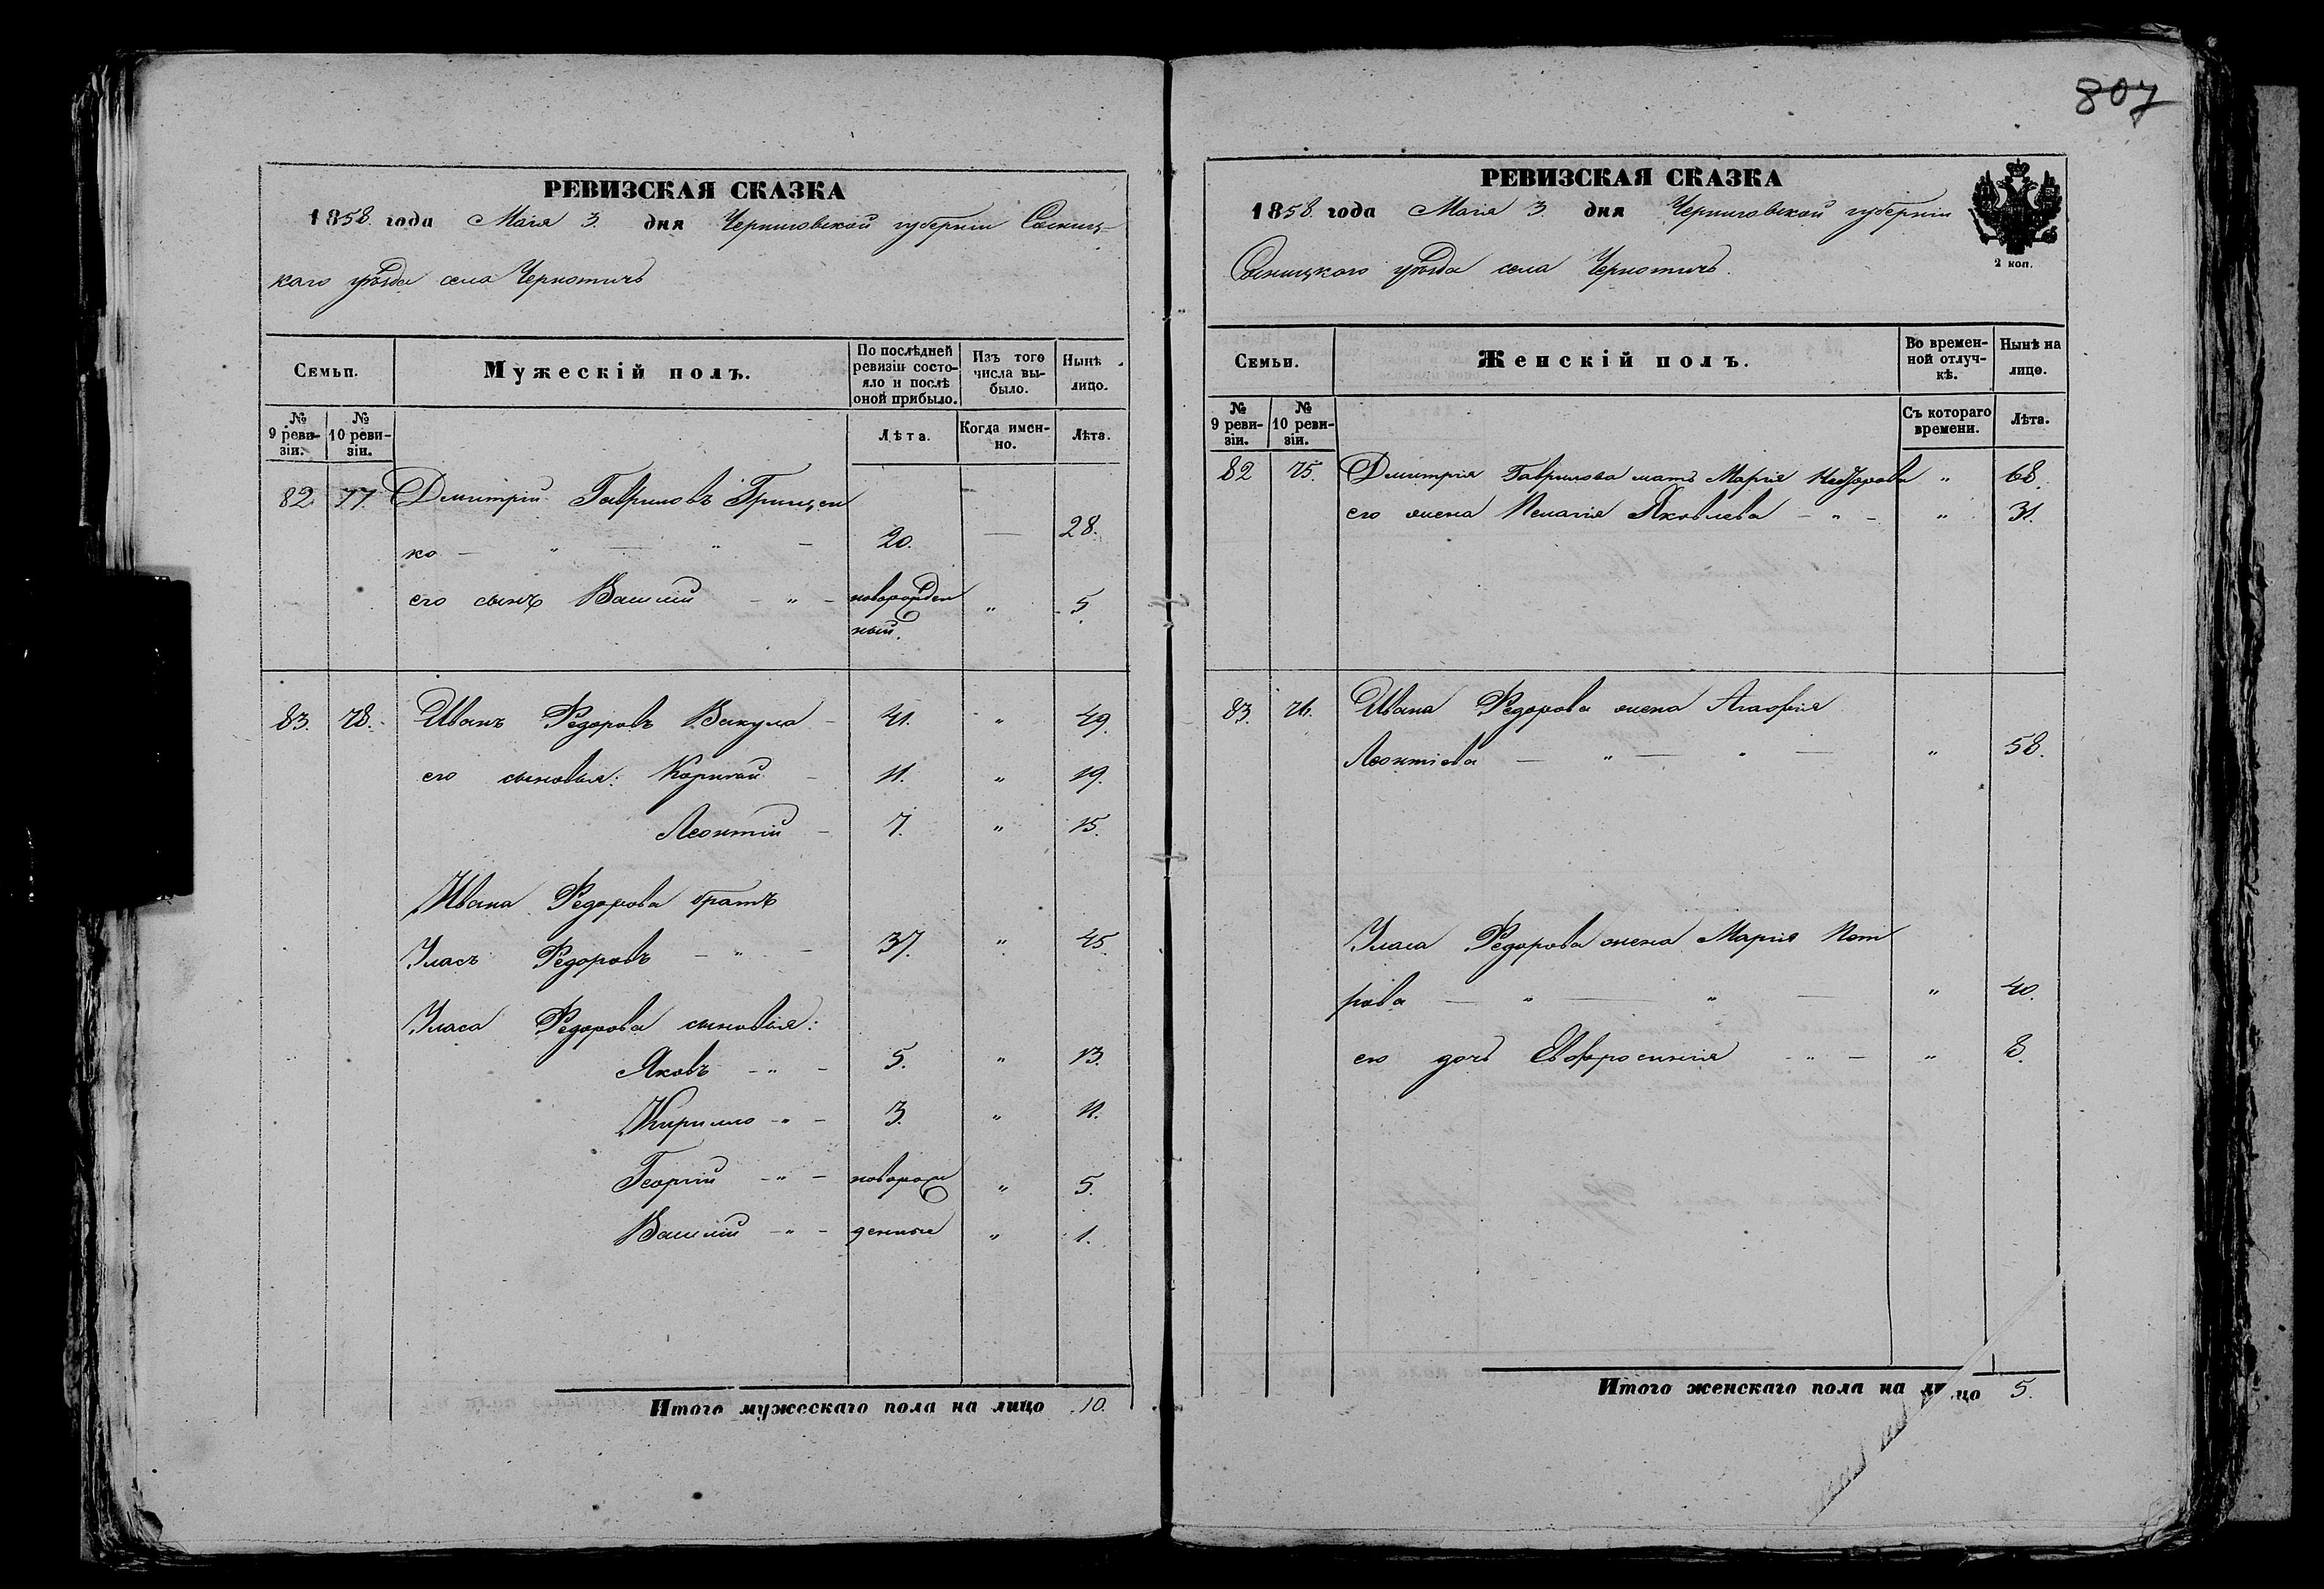 807
РЕВИЗСКАЯ СКАЗКА
1858 года Маія 3. дня Черниговской губерніи Сосниц-
каго уѣзда села Чернотичъ
Семьи.
Мужескій полъ.
По послѣдней ревизіи состояло и послѣ оной прибыло.
Изъ того числа выбыло.
Нынѣ лицо.
№ 9 ревизіи.
№ 10 ревизіи.
Лѣта.
Когда именно.
Лѣта.
82 77. Дмитрій Гавриловъ Грищен
ко — „ — „ — 20. — 28.
его сынъ Василій — „ — новорожден „ 5.
ный.
83. 78. Иванъ Федоровъ Вакула — 41. „ 49.
его сыновья: Корнѣй — 11. „ 19.
Леонтій — 7. „ 15.
Ивана Федорова братъ
Уласъ Федоровъ — „ — 37. „ 45.
Уласа Федорова сыновья:
Яковъ — „ — 5. „ 13.
Кирилло — „ — 3. „ 11.
Георгій — „ — неворож „ 5.
Василій — „ — денные „ 1.
Итого мужескаго пола на лицо 10.
РЕВИЗСКАЯ СКАЗКА
1858. года Маія 3. дня Черниговской губерніи
Сосницкаго уѣзда села Чернотичъ.
2 коп.
Семьи.
Женскій полъ.
Во временной отлучкѣ.
Нынѣ на лицо.
№ 9 ревизіи.
№ 10 ревизіи.
Съ котораго времени.
Лѣта.
82 75. Дмитрія Гаврилова мать Марія „ 68.
его жена Пелагія Яковлева — „ — „ 31.
83. 76. Ивана Федорова жена Агафія
Леонтіева — „ — „ — „ 58.
Уласа Федорова жена Марія Пет
рова — „ — „ — „ 40.
его дочь Евфросинія — „ — „ 8.
Итого женскаго пола на лицо 5.